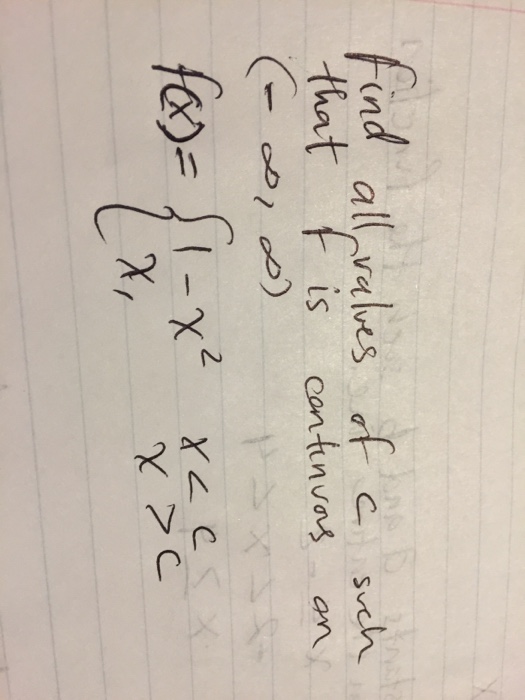 find all values of c such
that f is continuous on
(-∞, ∞)
f(x) = { 1 - x² x < c
x, x > c